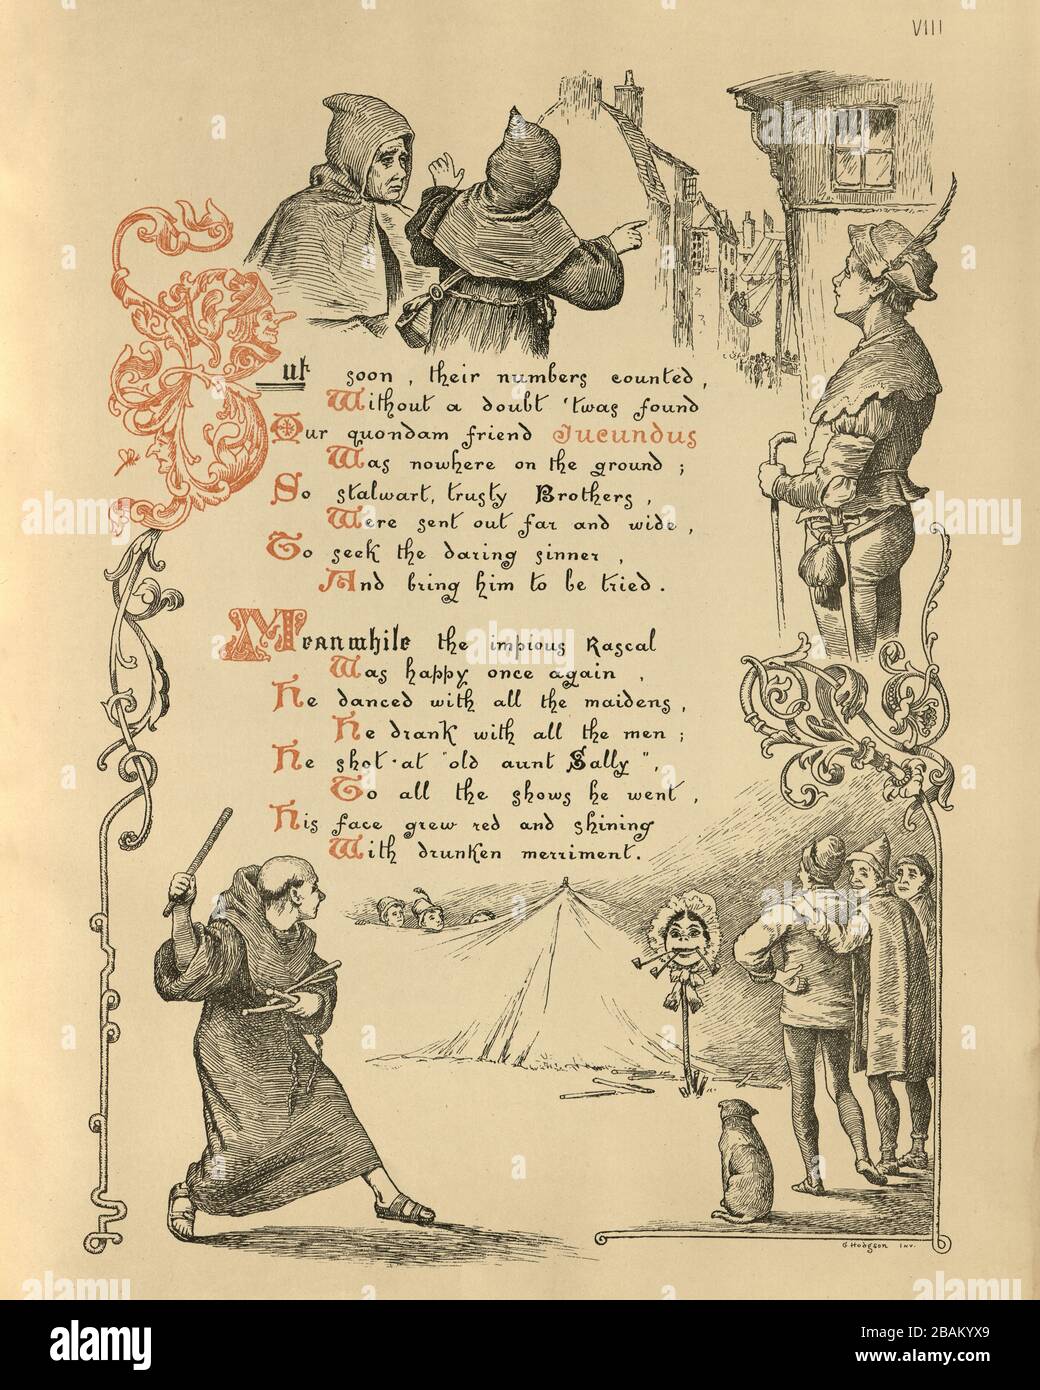 VIII
But soon, their numbers counted,
Without a doubt 'twas found
Our quondam friend Jucundus
Was nowhere on the ground;
So stalwart, trusty Brothers,
Were sent out far and wide,
To seek the daring sinner,
And bring him to be tried.
Meanwhile the impious Rascal
Was happy once again,
He danced with all the maidens,
He drank with all the men;
He shot at "old aunt Sally",
To all the shows he went,
His face grew red and shining
With drunken merriment.
G. Hodgson Inv.
alamy
Image ID: 2BAKYX9
www.alamy.com